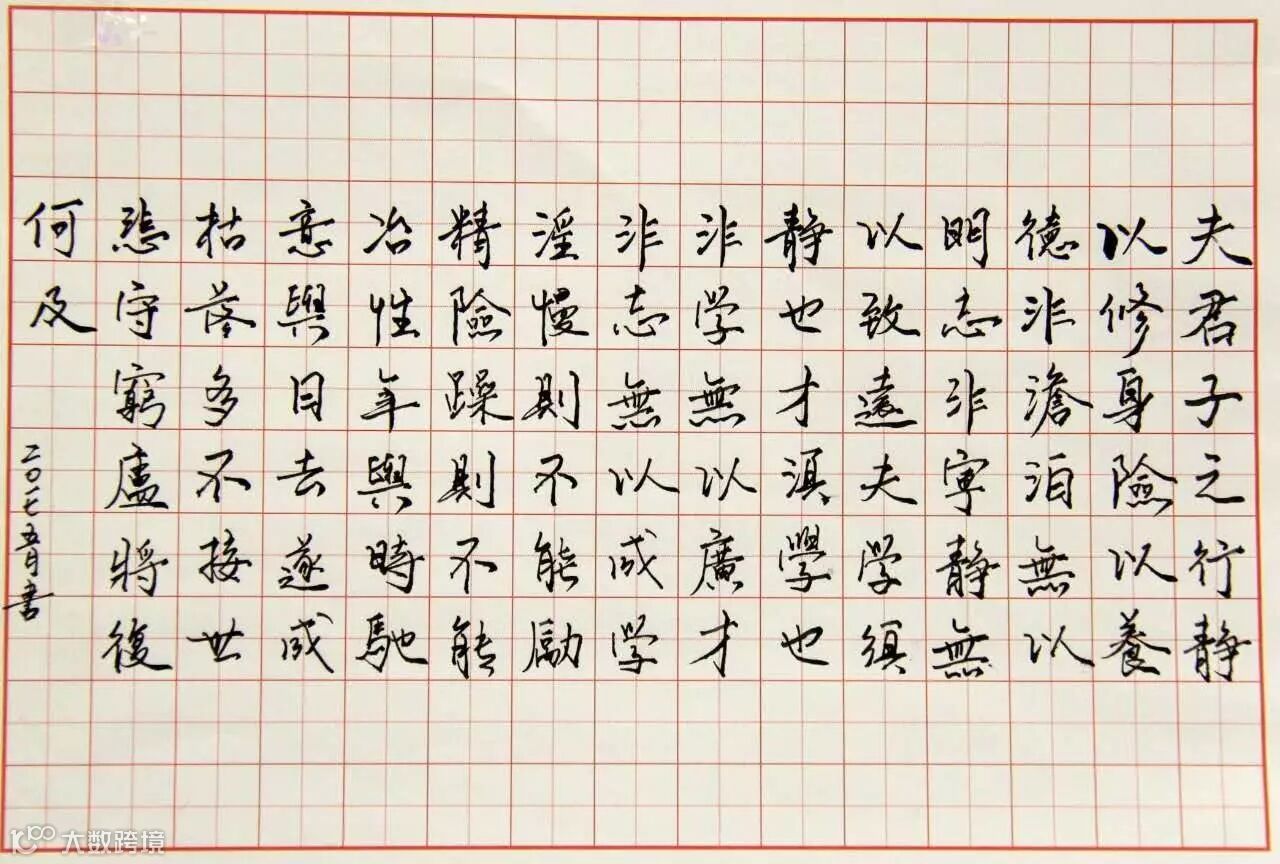 夫君子之行静
以修身險以養
德非澹泊無以
明志非寧静無
以致遠夫学須
静也才須學也
非学無以廣才
非志無以成学
淫慢則不能勵
精險躁則不能
冶性年與時馳
意與日去遂成
枯落多不接世
悲守窮廬將復
何及
二〇一七五月書
大数跨境